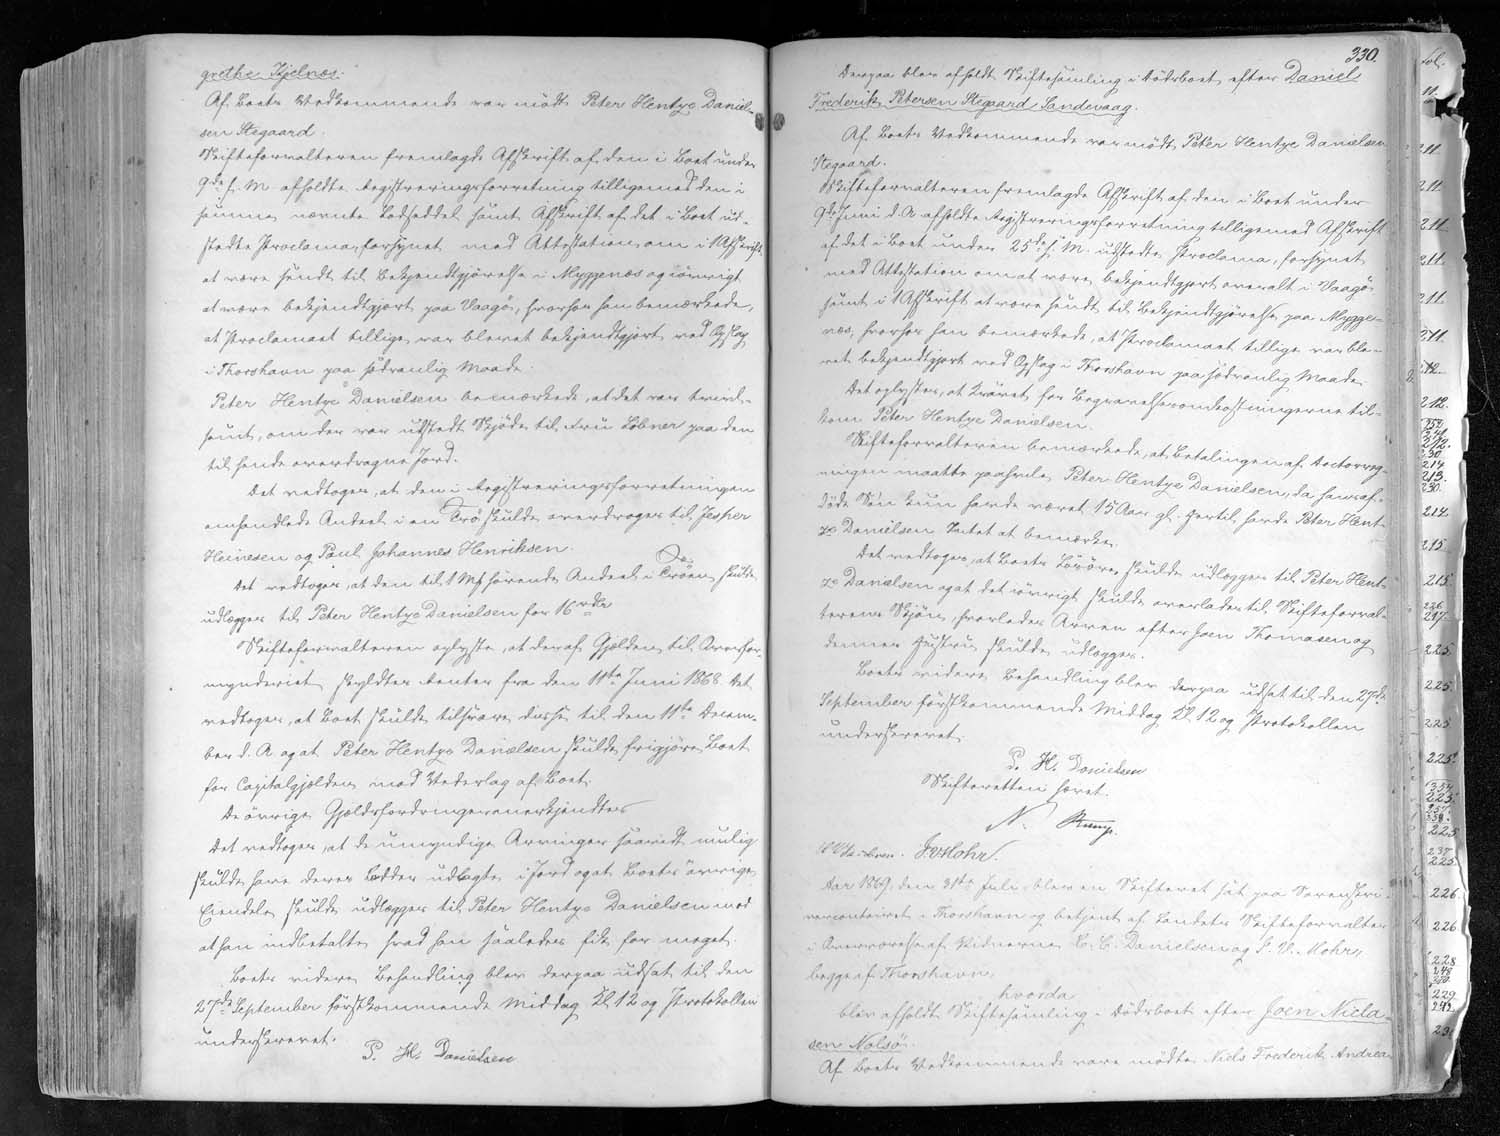 grethe Kjelnæs.
Af Boets Vedkommende var mødt Peter Hentze Daniel-
sen Stegaard.
Skifteforvalteren fremlagde Afskrift af den i Boet under
9de f. M. afholdte Registreringsforretning tilligemed den i
samme nævnte Lodseddel samt Afskrift af det i Boet ud-
stedte Proclama, forsynet med Attestation, om i 1 Afskrift
at være sendt til Bekjendtgjørelse i Myggenæs og iøvrigt
at være bekjendtgjort paa Vaagø, hvorhos han bemærkede,
at Proclamaet tillige var blevet bekjendtgjort ved Opslag
i Thorshavn paa sædvanlig Maade.
Peter Hentze Danielsen bemærkede, at det var tvivl-
somt, om der var udstedt Skjøde til Fru Løbner paa den
til hende overdragne Jord.
Det vedtoges, at den i Registreringsforretningen
omhandlede Andeel i en Trø skulde overdrages til Jesper
Heinesen og Paul Johannes Henriksen.
Det vedtoges, at den til 1 Mk hørende Andeel i Trøen skulde
udlægges til Peter Hentze Danielsen for 16
Skifteforvalteren oplyste, at der af Gjælden til Overfor-
mynderiet skyldtes Renter fra den 11te Juni 1868. Det
vedtoges, at Boet skulde tilsvare disse til den 11te Decem-
ber d. A. og at Peter Hentze Danielsen skulde frigjøre Boet
for Capitalgjælden mod Vederlag af Boet.
De øvrige Gjældsfordringer anerkjendtes
Det vedtoges, at de umyndige Arvinger saavidt mulig
skulde have deres Lodder udlagte i Jord og at Boets øvrige
Eiendele skulde udlægges til Peter Hentze Danielsen mod
at han indbetalte hvad han saaledes fik for meget.
Boets videre Behandling blev derpaa udsat til den
27de September førstkommende Middag Kl 12 og Protokollen
underskrevet.
P. H. Danielsen
330.
Derpaa blev afholdt Skiftesamling i Dødsboet efter Daniel
Frederik Petersen Stegaard Sandevaag.
Af Boets Vedkommende var mødt Peter Hentze Danielsen
Stegaard.
Skifteforvalteren fremlagde Afskrift af den i Boet under
9de Juni d. A. afholdte Registreringsforretning tilligemed Afskrift
af det i Boet under 25de f. M. udstedte Proclama, forsynet
med Attestation om at være bekjendtgjort overalt i Vaagø
samt i 1 Afskrift at være sendt til Bekjendtgjørelse paa Mygge-
næs, hvorhos han bemærkede, at Proclamaet tillige var ble-
vet bekjendtgjort ved Opslag i Thorshavn paa sædvanlig Maade.
Det oplystes, at Kravet for Begravelsesomkostningerne til-
kom Peter Hentze Danielsen.
Skifteforvalteren bemærkede, at Betalingen af Doctorreg-
ningen maatte paahvile Peter Hentze Danielsen, da hans af-
døde Søn kun havde været 15 Aar gl. Hertil havde Peter Hent-
ze Danielsen Intet at bemærke.
Det vedtoges, at Boets Løsøre skulde udlægges til Peter Hent-
ze Danielsen og at det iøvrigt skulde overlades til Skifteforval-
terens Skjøn, hvorledes Arven efter Joen Thomasen og
dennes Hustru skulde udlægges.
Boets videre Behandling blev derpaa udsat til den 27de
September førstkommende Middag Kl 12 og Protokollen
underskrevet.
P. H. Danielsen
Skifteretten hævet.
N. Rump.
J. V. Mohr.
Aar 1869, den 31te Juli, blev en Skifteret sat paa Sorenskri-
vercontoiret i Thorshavn og betjent af Landets Skifteforvalter
i Overværelse af Vidnerne C. C. Danielsen og J. V. Mohr,
begge af Thorshavn,
hvorda
blev afholdt Skiftesamling i Dødsboet efter Joen Nicla-
sen Nolsø.
Af Boets Vedkommende vare mødte Niels Frederik Andrea
fol.
11.
211.
211.
211.
211.
211.
211.
212.
212.
212.
230
214
213.
230.
214
215
215.
226.
217.
225
225.
225
225.
354
225.
225
237
225.
226.
226
228
229
242.